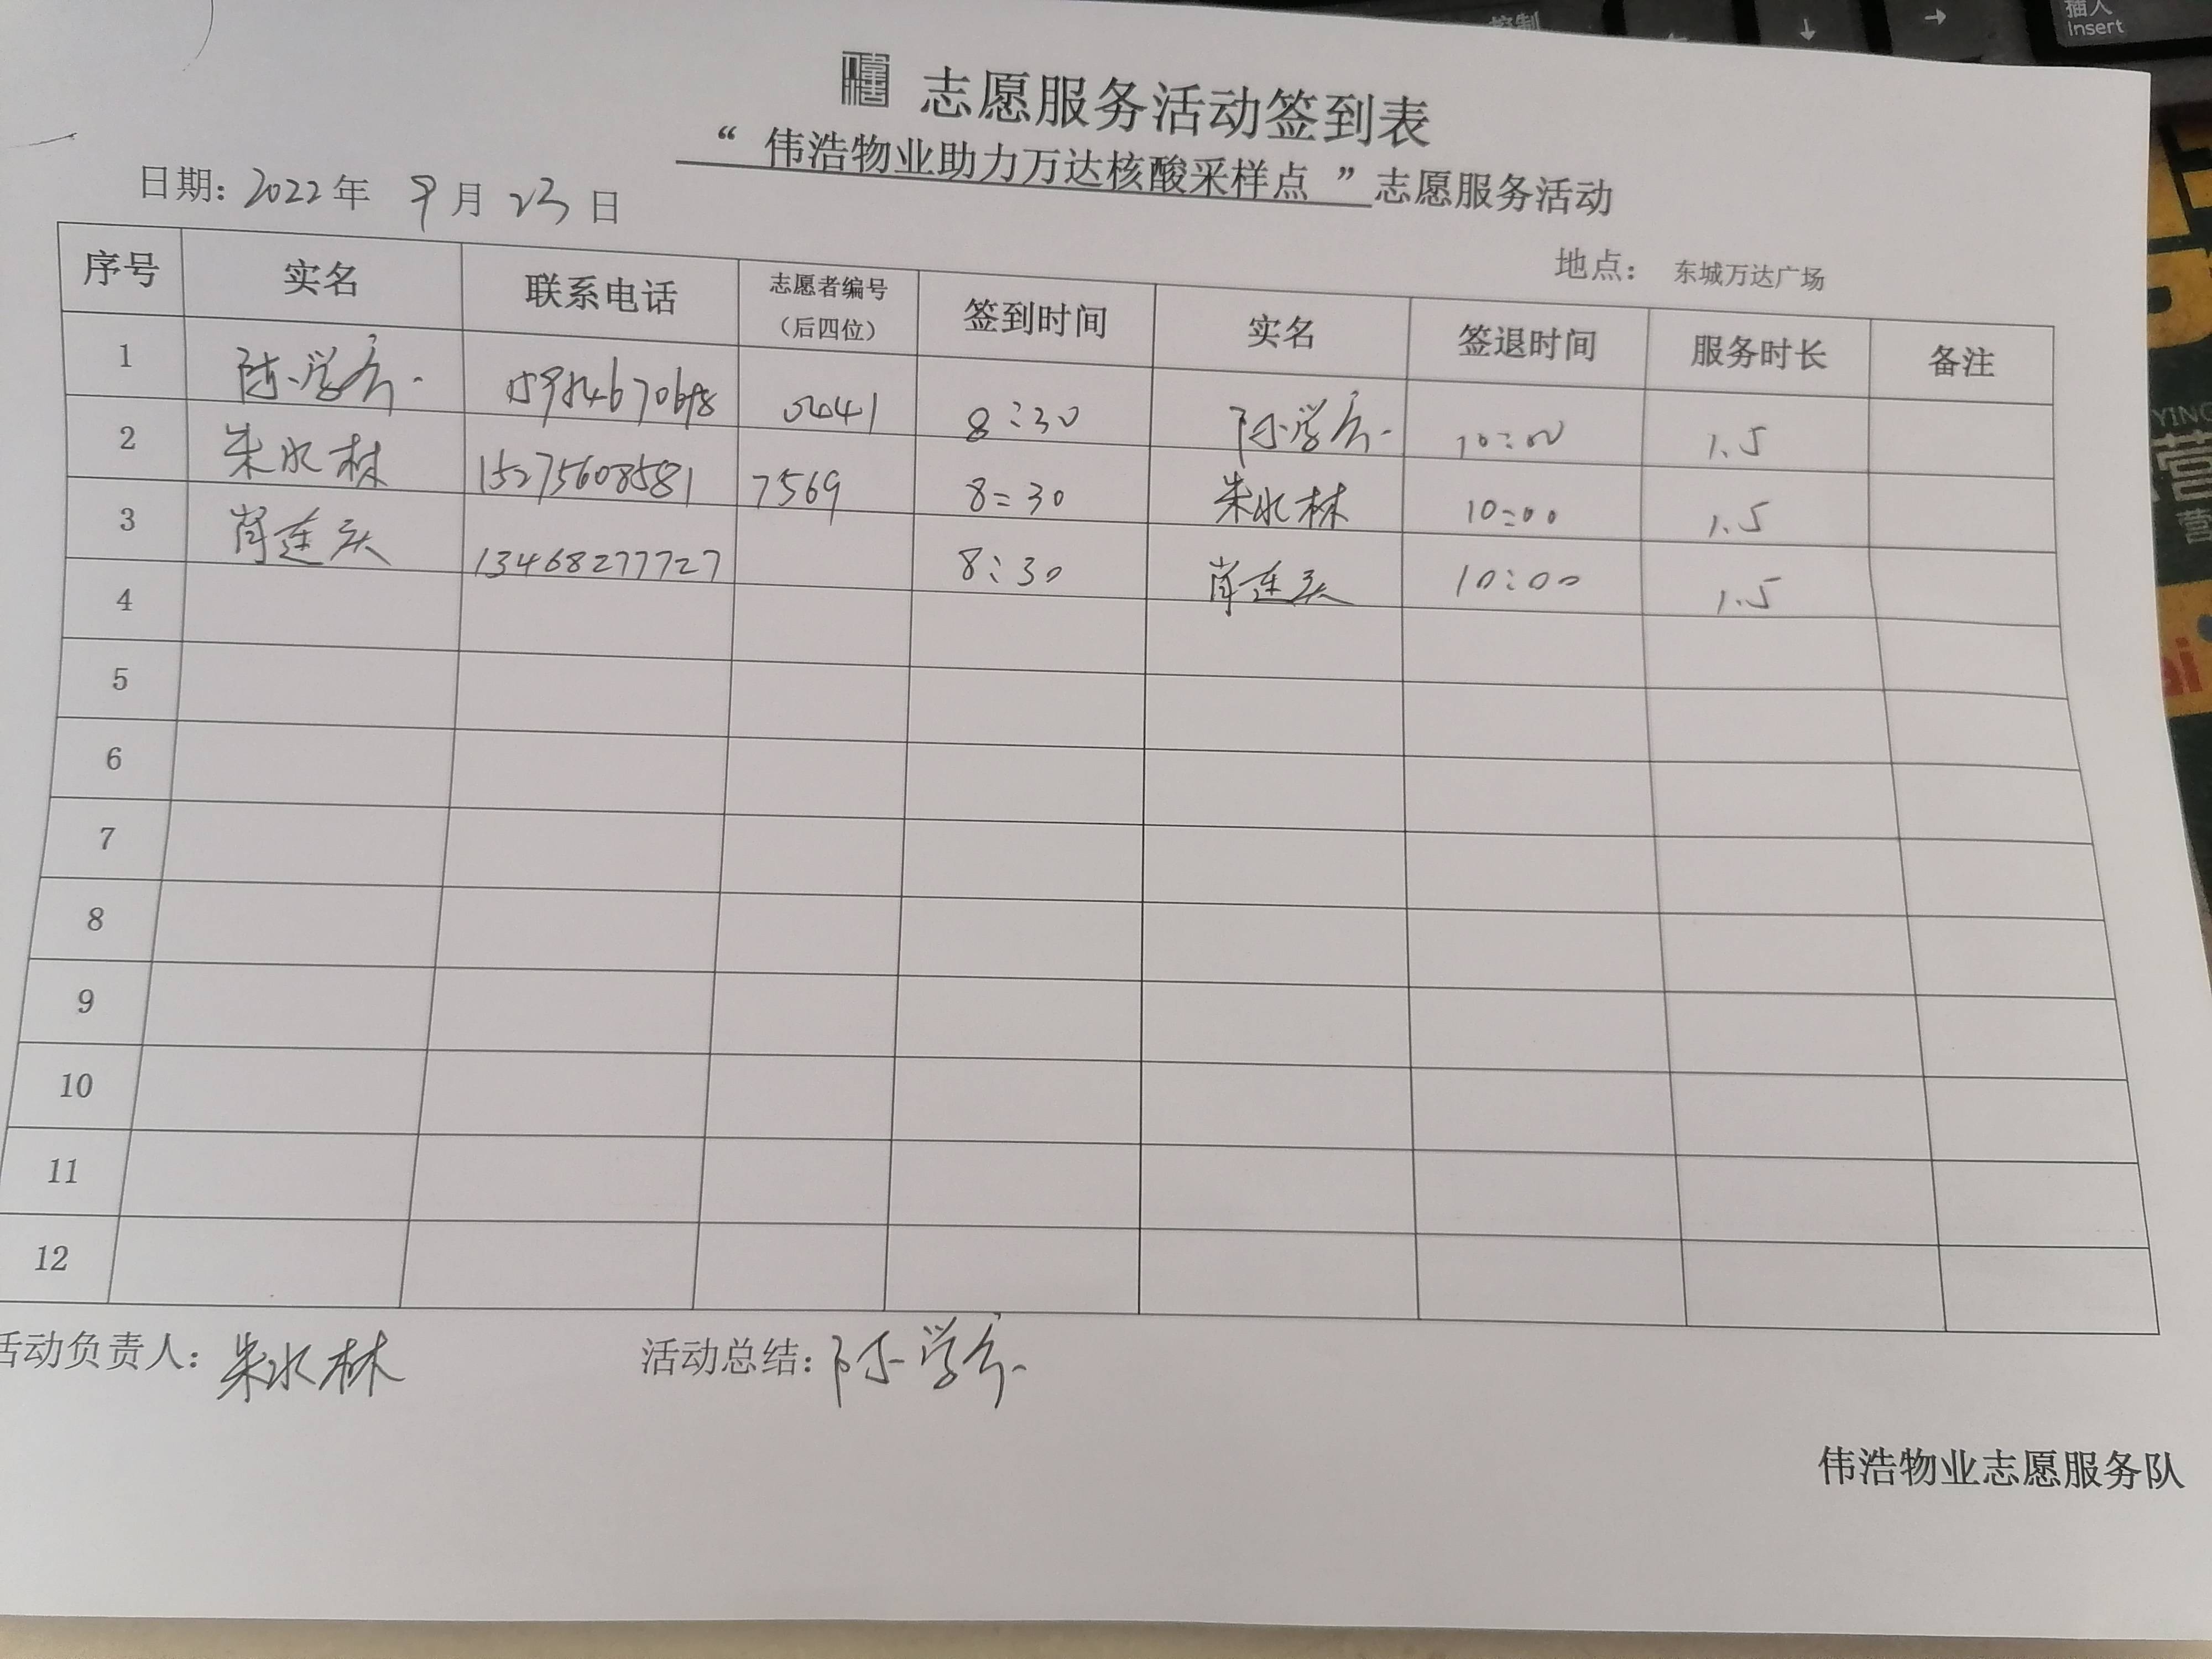 控制
插入
Insert
志愿服务活动签到表
“ 伟浩物业助力万达核酸采样点 ”志愿服务活动
日期: 2022年 9月 23日
地点: 东城万达广场
序号 实名 联系电话 志愿者编号（后四位） 签到时间 实名 签退时间 服务时长 备注
1 陈学 0441 8:30 陈学 10:00 1.5
2 朱水林 15275608581 7569 8:30 朱水林 10:00 1.5
3 肖连庆 13468277727 8:30 肖连庆 10:00 1.5
4
5
6
7
8
9
10
11
12
活动负责人: 朱水林 活动总结: 陈学
伟浩物业志愿服务队
YING
营
营
ai